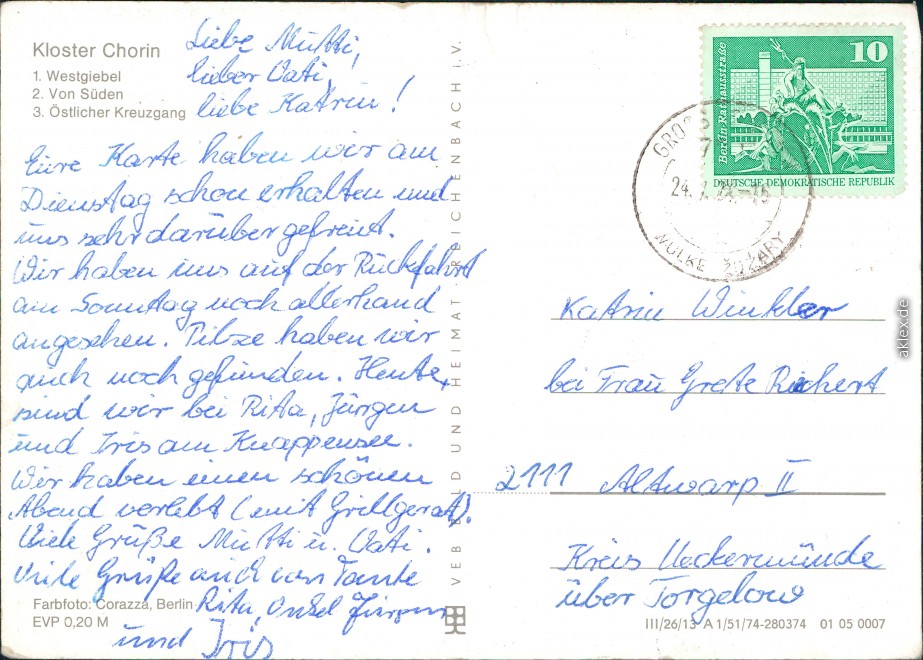 Kloster Chorin
1. Westgiebel
2. Von Süden
3. Östlicher Kreuzgang
Liebe Mutti,
lieber Vati,
liebe Katrin!
Eure Karte haben wir am
Dienstag schon erhalten und
uns sehr darüber gefreut.
Wir haben uns auf der Rückfahrt
am Sonntag noch allerhand
angesehen. Pilze haben wir
auch noch gefunden. Heute
sind wir bei Rita, Jürgen
und Iris am Knappensee.
Wir haben einen schönen
Abend verlebt (mit Grillgerät).
Viele Grüße Mutti u. Vati.
Viele Grüße auch von Tante
Rita, Onkel Jürgen
und Iris
Farbfoto: Corazza, Berlin
EVP 0,20 M
VEB BILD UND HEIMAT REICHENBACH I. V.
10
Berlin Rathausstraße
DEUTSCHE DEMOKRATISCHE REPUBLIK
Katrin Winkler
bei Frau Grete Richert
2111 Altwarp II
Kreis Ueckermünde
über Torgelow
III/26/13 A 1/51/74-280374 01 05 0007
aklex.de